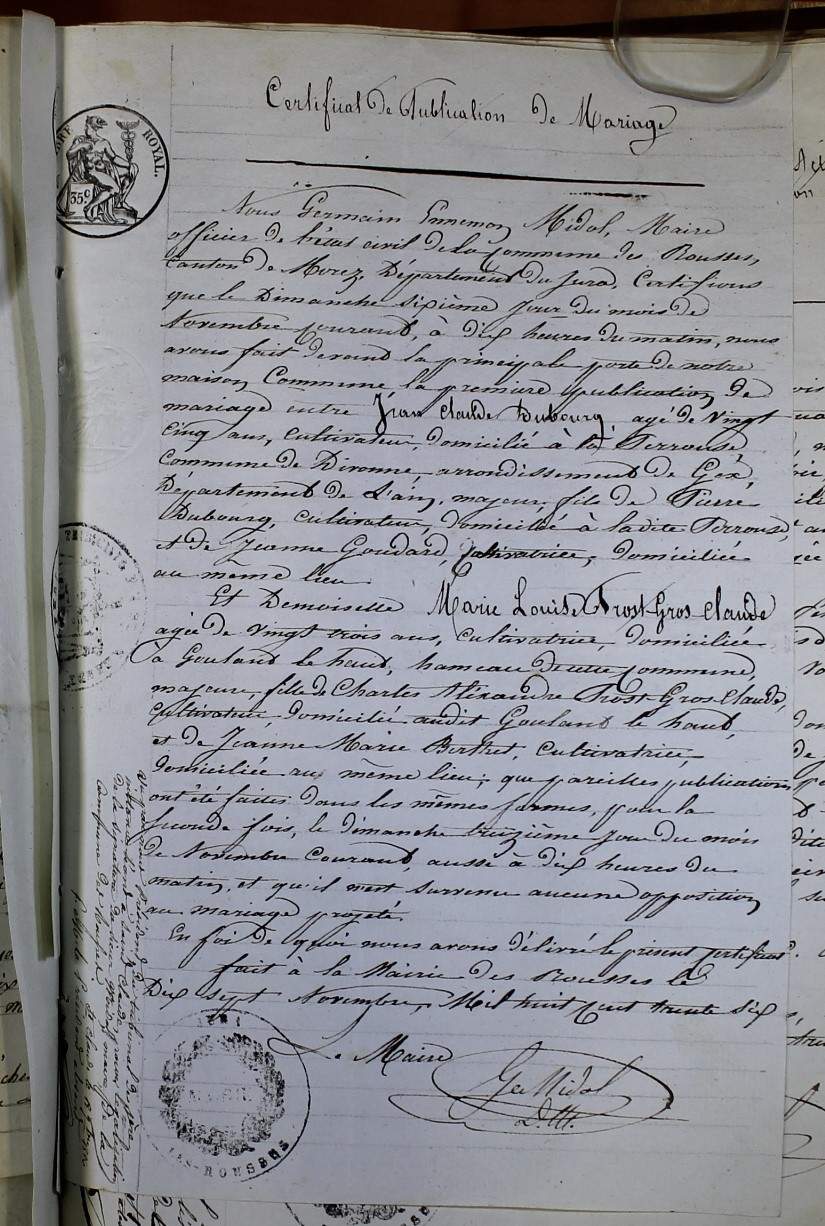 Certificat de Publication de Mariage
ROYAL.
35 c
Nous Germain Ennemon Midol, Maire
officier de l'état civil de la Commune des Rousses,
Canton de Morez, Département du Jura, Certifions
que le Dimanche sixième jour du mois de
Novembre courant, à dix heures du matin, nous
avons fait devant la principale porte de notre
maison Commune la première publication de
mariage entre Jean Claude Dubourg, agé de vingt
cinq ans, cultivateur, domicilié à la
Commune de Divonne arrondissement de Gex,
Département de l'ain, majeur, fils de Pierre
Dubourg, cultivateur, domicilié à ladite
et de Jeanne Goudard, Cultivatrice, domiciliée
au même lieu
Et Demoiselle Marie Louise Prost Gros Claude
agée de vingt trois ans, cultivatrice, domiciliée
à Gouland le haut, hameau de cette commune,
majeure, fille de Charles Aléxandre Prost-Gros-Claude,
cultivateur domicilié audit Gouland le haut,
et de Jeanne Marie Berthet, cultivatrice,
domiciliée au même lieu; que pareilles publications
ont été faites dans les mêmes formes, pour la
seconde fois, le dimanche treizième jour du mois
de Novembre Courant, aussi à dix heures du
matin, et qu'il n'est survenu aucune opposition
au mariage projeté.
En foi de quoi nous avons délivré le présent certificat.
fait à la Mairie des Rousses le
Dix sept Novembre, Mil huit cent trente six
Le Maire
Ge Midol
LES-ROUSSES